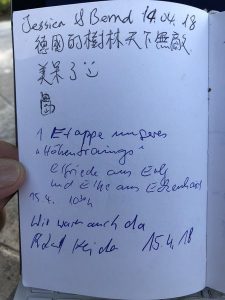 Jessica & Bernd 14.04.18
德國的樹林天下無敵
美呆了
1 Etappe unseres
"Höhentrainings"
Elfriede aus
und Elke aus
15.4. 10³⁰h
Wir waren auch da
15.4.18